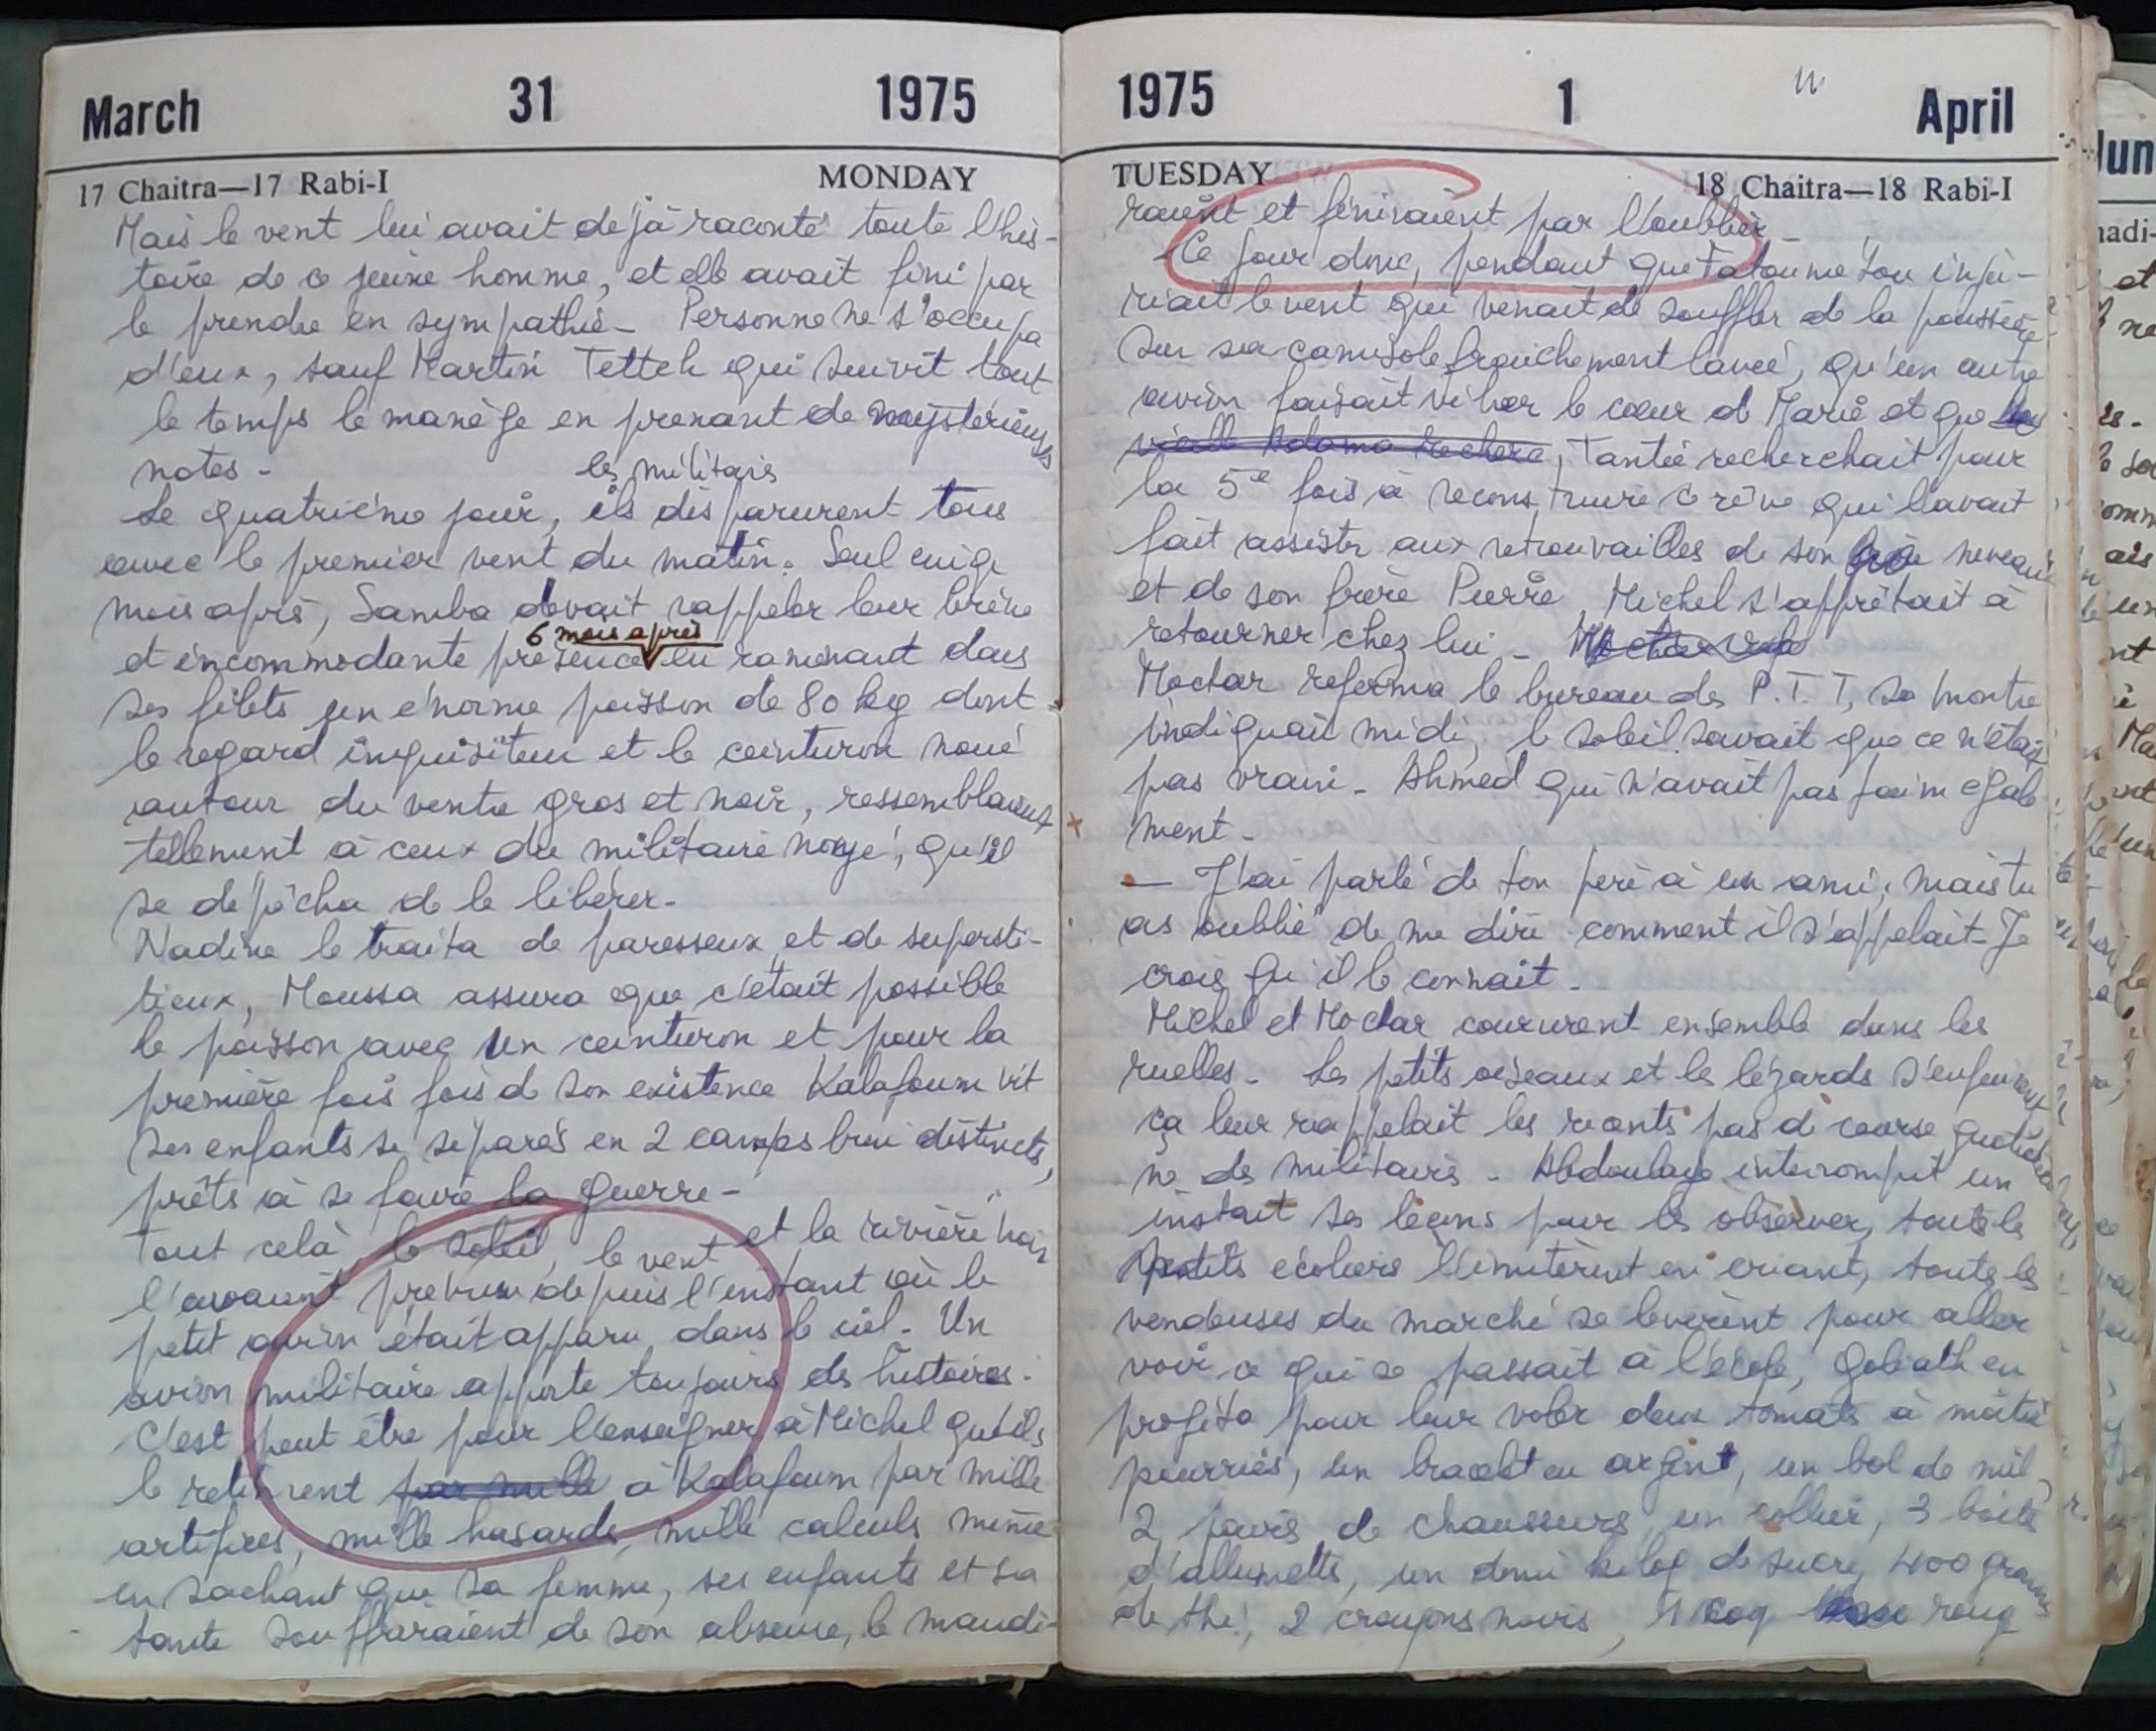 March 31 1975
17 Chaitra—17 Rabi-I MONDAY
Mais le vent lui avait déjà raconté toute l'his-
toire de ce jeune homme, et elle avait fini par
le prendre en sympathie - Personne ne s'occupa
d'eux, sauf Martin Tetteh qui suivit tout
le temps le manège en prenant de mystérieuses
notes -
les militaires
Le quatrième jour, ils disparurent tous
avec le premier vent du matin. Seul cinq
mois après, Samba devait rappeler leur brève
6 mois après
et incommodante présence en ramenant dans
ses filets un énorme poisson de 80 kg dont
le regard inquisiteur et le ceinturon noué
autour du ventre gros et noir, ressemblaient
tellement à ceux du militaire noyé, qu'il
se dépêcha de le libérer -
Nadine le traita de paresseux et de supersti-
tieux, Moussa assura que c'était possible
le poisson avec un ceinturon et pour la
première fois fois de son existence Kalafoum vit
ses enfants se séparés en 2 camps bien distincts,
prêts à se faire la guerre -
Tout celà, le soleil, le vent et la rivière
l'avaient prévu depuis l'instant où le
petit avion était apparu dans le ciel - Un
avion militaire apporte toujours des histoires.
C'est peut être pour l'enseigner à Michel qu'ils
le retinrent par mille à Kalafoum par mille
artifices, mille hasards, mille calculs même
en sachant que sa femme, ses enfants et sa
tante souffriraient de son absence, le maudi-
1975 1 April
TUESDAY 18 Chaitra—18 Rabi-I
raient et finiraient par l'oublier -
Ce jour donc, pendant que Fatoumé Sou inju-
riait le vent qui venait de souffler de la poussière
sur sa camisole fraichement lavée, qu'un autre
avion faisait vibrer le cœur de Marie et que
vieille Adama, Tantie recherchait pour
la 5e fois à reconstruire ce rêve qui l'avait
fait assister aux retrouvailles de son neveu
et de son frère Pierre, Michel s'apprêtait à
retourner chez lui -
Moctar referma le bureau des P.T.T, sa montre
indiquait midi, le soleil savait que ce n'était
pas vrai - Ahmed qui n'avait pas faim égale
ment -
— J'ai parlé de ton père à un ami, mais tu
as oublié de me dire comment il s'appelait - Je
crois qu'il le connait -
Michel et Moctar coururent ensemble dans les
ruelles - Les petits oiseaux et les lézards s'enfuirent
ça leur rappelait les récents pas de course quotidien
ne des militaires - Abdoulaye interrompit un
instant ses leçons pour les observer, toute les
petits écoliers l'imitèrent en criant, toute les
vendeuses du marché se levèrent pour aller
voir ce qui se passait à l'école, Goliath en
profita pour leur voler deux tomates à moitié
pourries, un bracelet en argent, un bol de mil,
2 paires de chaussures, un collier, 3 boites
d'allumettes, un demi kilog de sucre, 400 grammes
de thé, 2 crayons noirs, 1 coq rouge